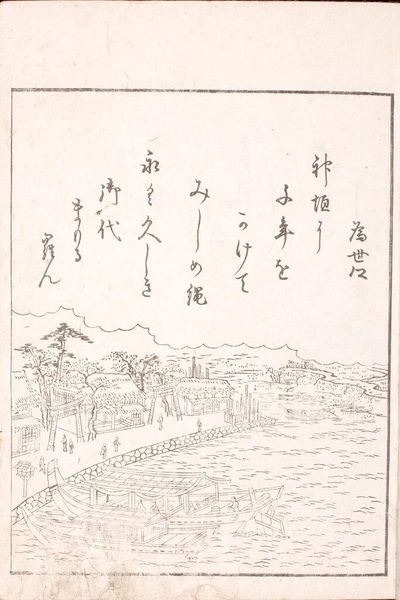 為世卿
神垣に
千年を
かけて
みしめ縄
永く久しき
御代
まもる
羅ん